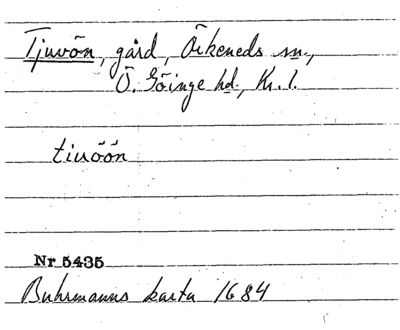 Tjuvön, gård, Örkeneds sn.,
Ö. Göinge hd., Kr. l.
tiuöön
Nr 5435
Buhrmanns karta 1684